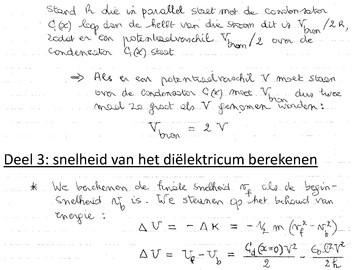 stand R die in parallel staat met de condensator
C(x) loop dan de helft van die stroom dit is V_bron/2R,
zodat er een potentiaalverschil V_bron/2 over de
condensator C(x) staat
⇒ Als er een potentiaalverschil V moet staan
over de condensator C(x) moet V_bron dus twee
maal zo groot als V genomen worden:
V_bron = 2 V
Deel 3: snelheid van het diëlektricum berekenen
* We berekenen de finale snelheid v_f als de begin-
snelheid v_b is. We steunen op het behoud van
energie:
ΔU = - ΔK = - ½ m (v_f² - v_b²)
ΔU = U_f - U_b = C_d(x=0)V²/2 - ε₀ l² V²/2h